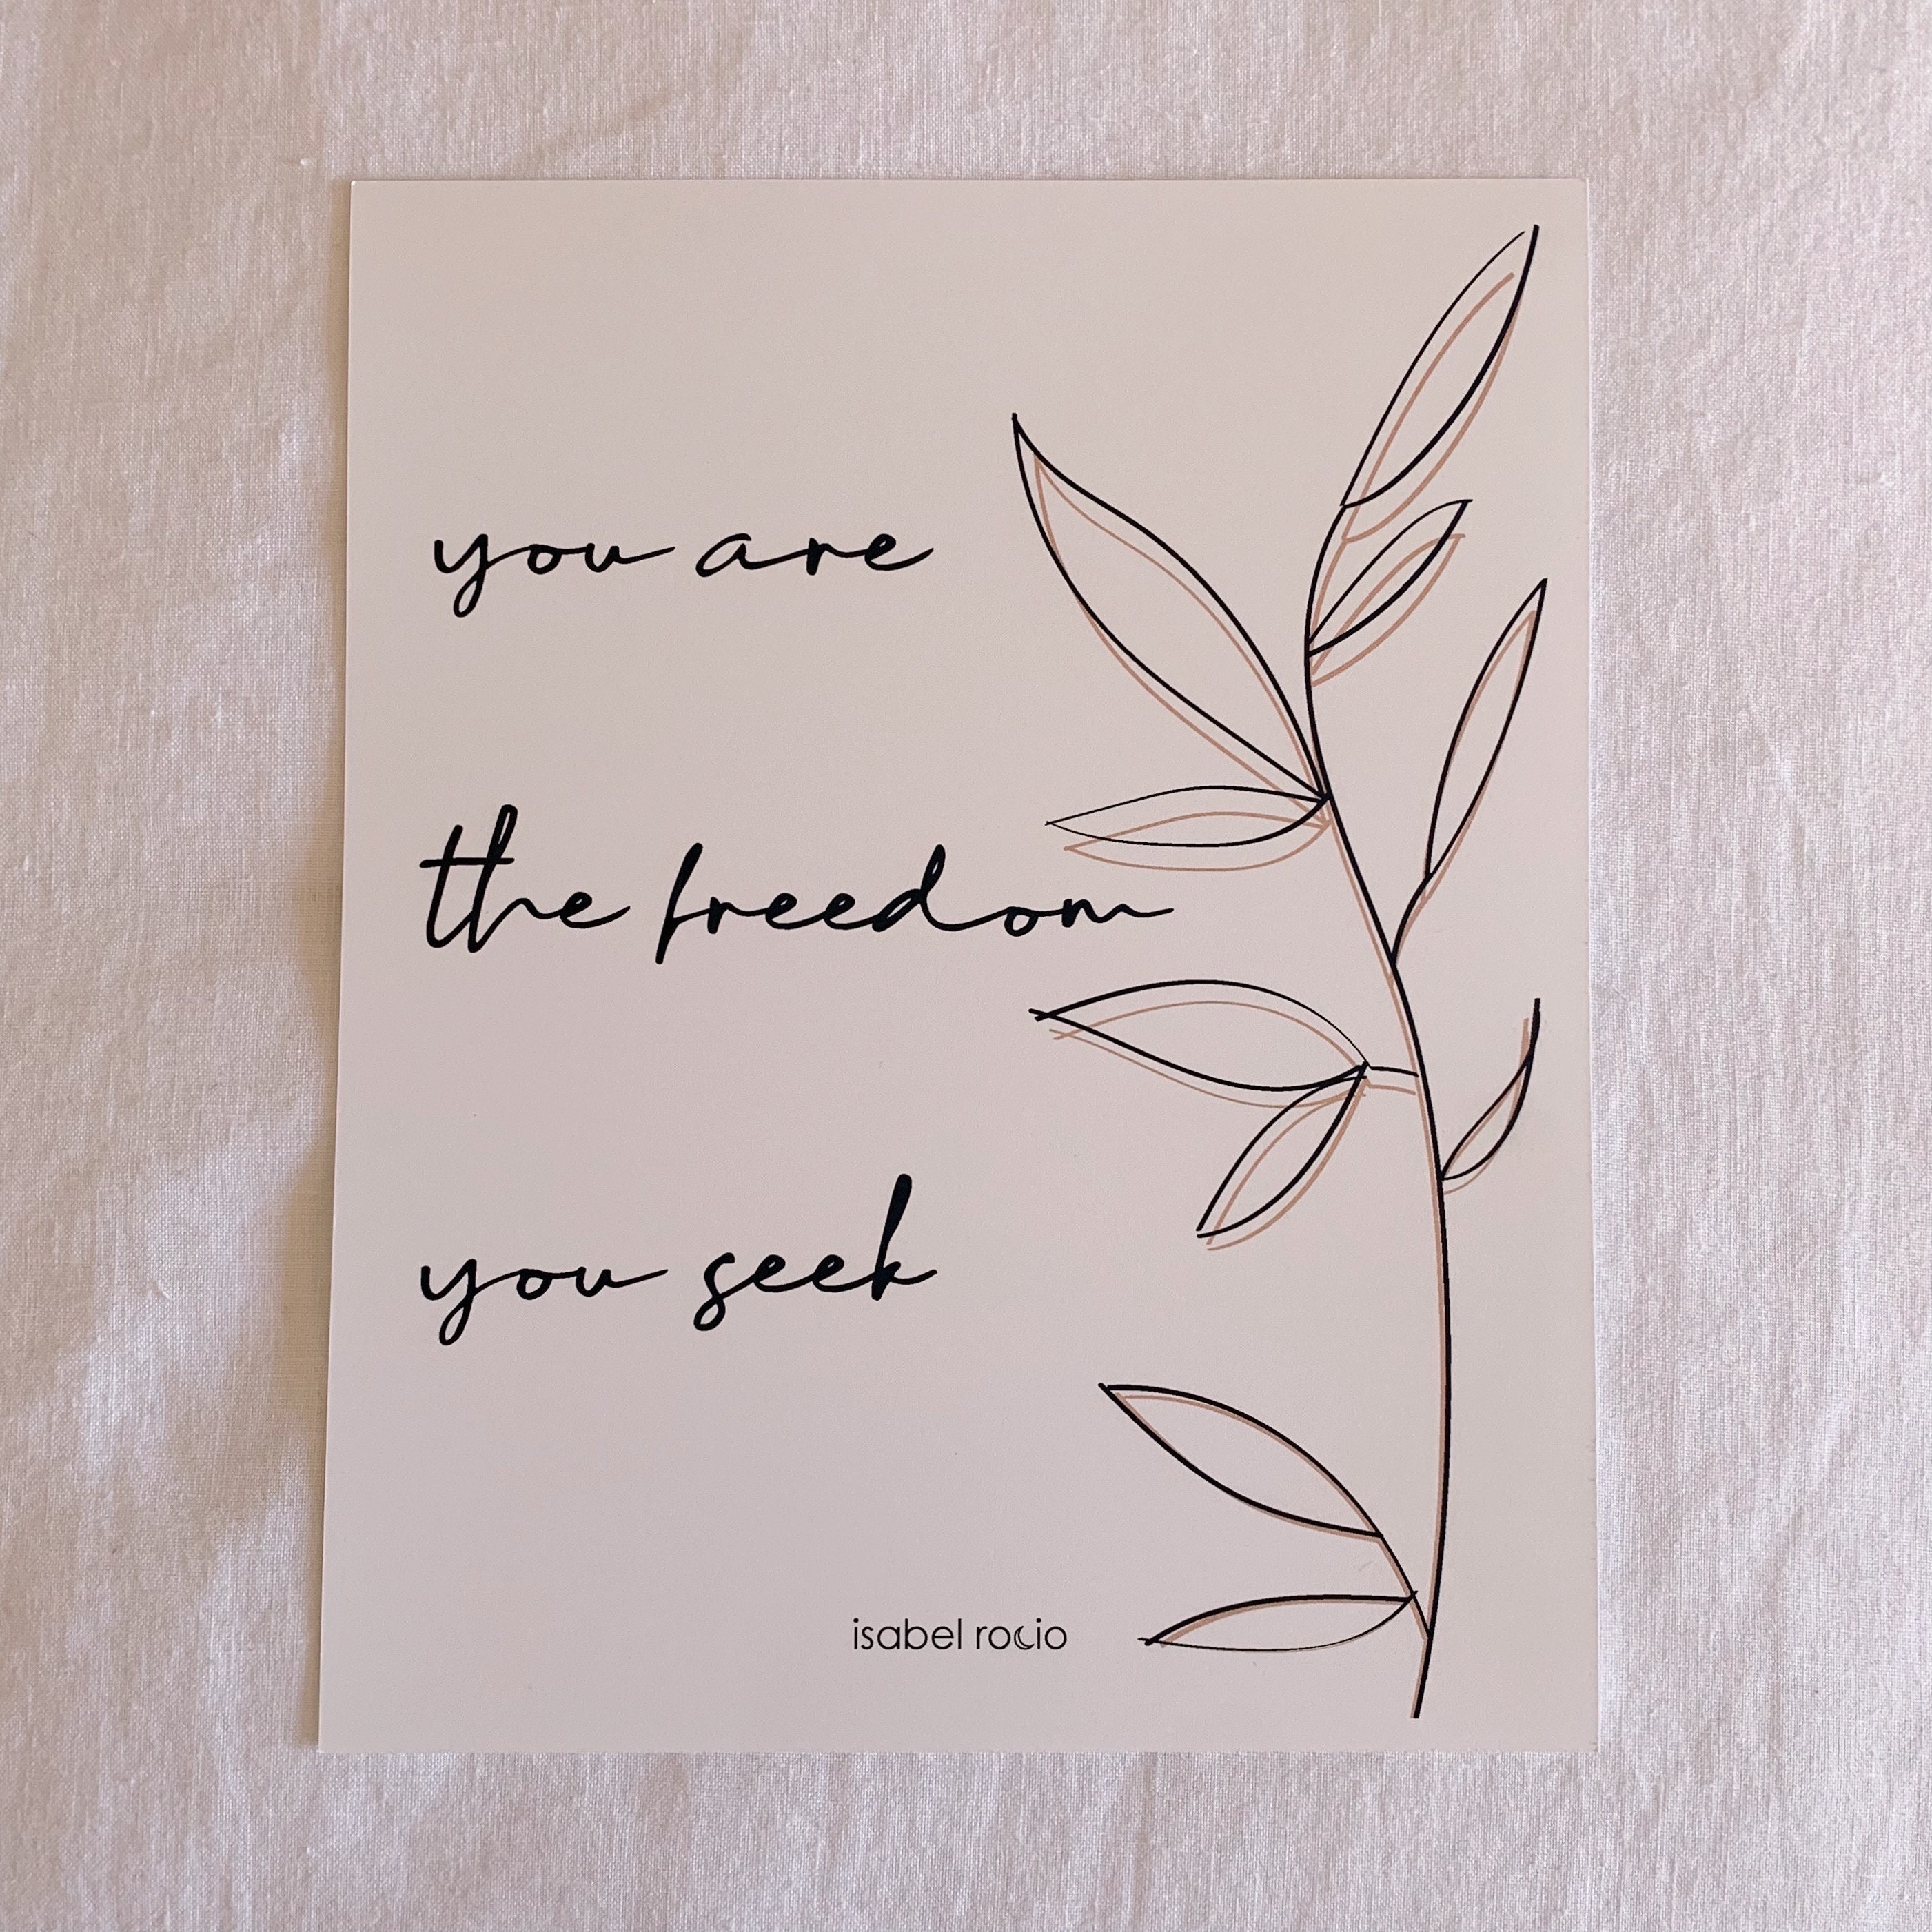 you are
the freedom
you seek
isabel rocio